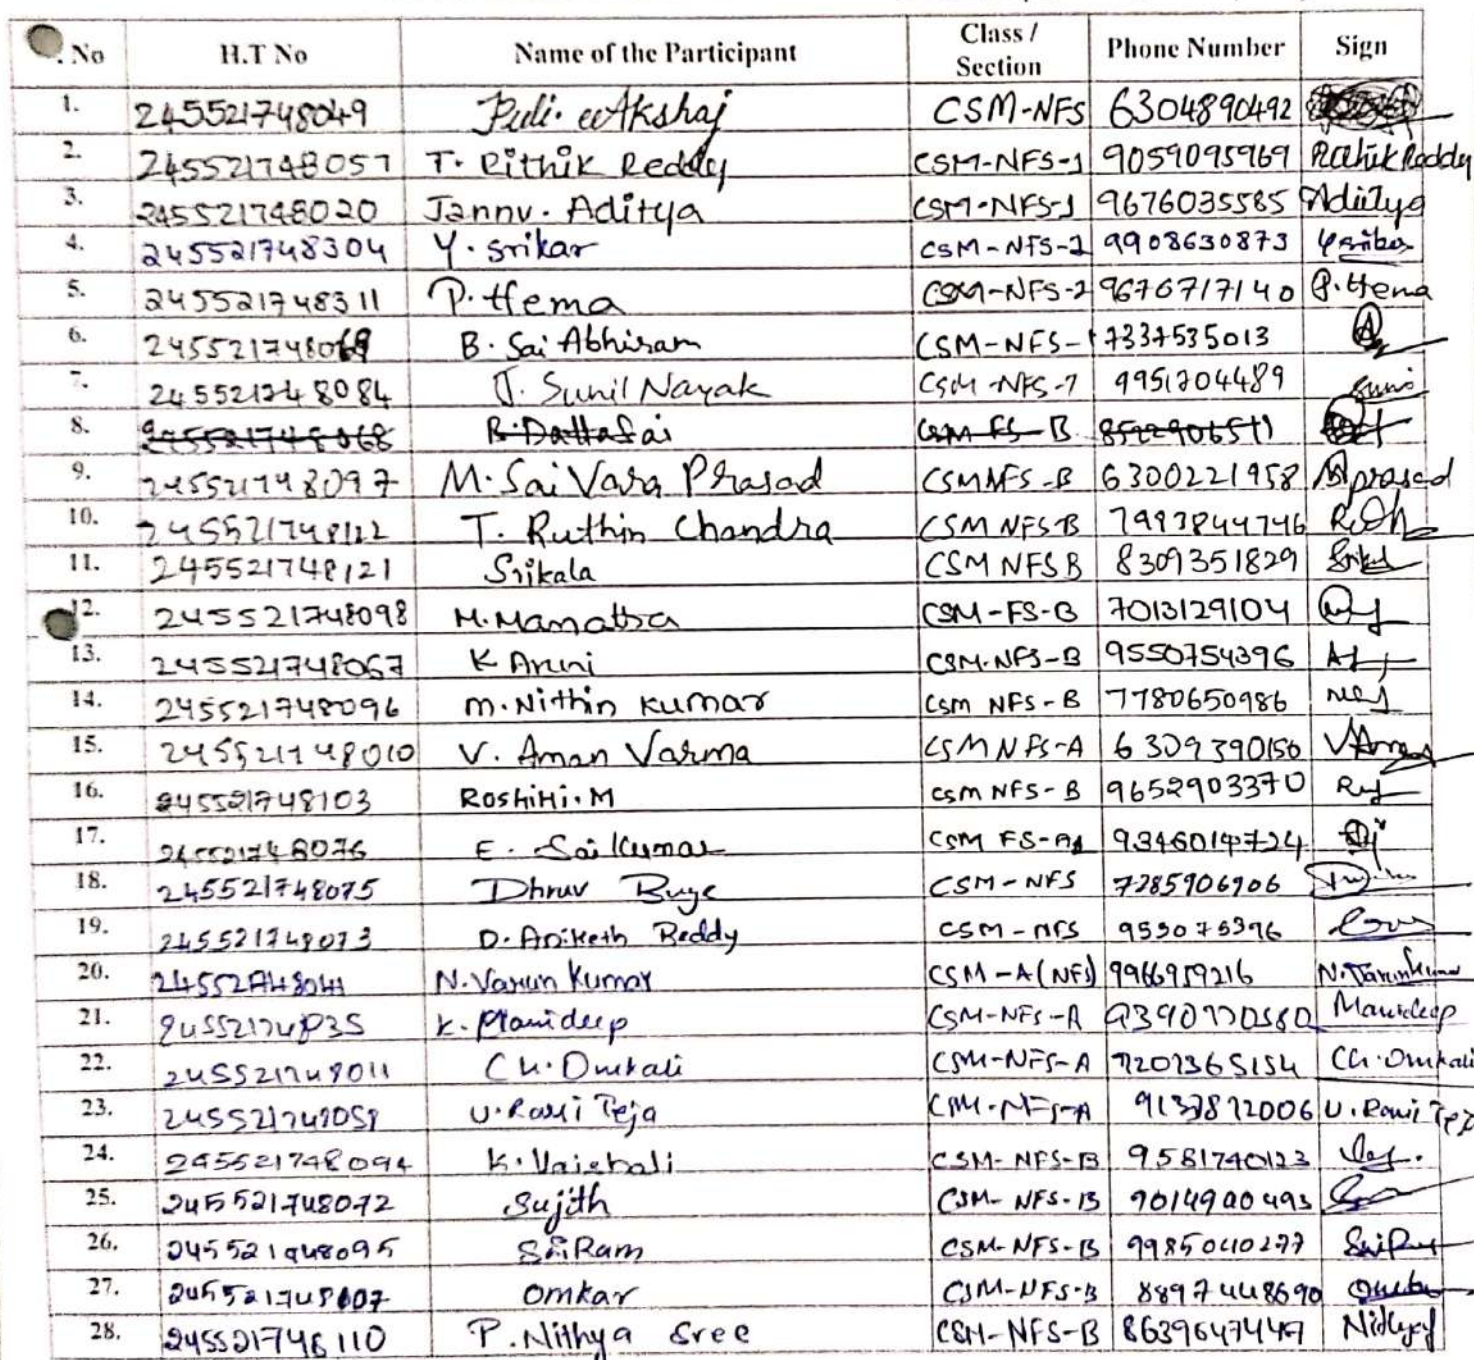 . No H.T No Name of the Participant Class / Section Phone Number Sign
1. 245521748049 Puli. Akshaj CSM-NFS 6304890492
2. 245521748057 T. Rithik Reddy CSM-NFS-1 9059095969 Rithik Reddy
3. 245521748020 Jannu. Aditya CSM-NFS-1 9676035585 Aditya
4. 245521748304 Y. Srikar CSM-NFS-1 9908630873 Y srikar
5. 245521748311 P. Hema CSM-NFS-1 9676717140 P. Hema
6. 245521748069 B. Sai Abhiram CSM-NFS-1 7337535013
7. 245521748084 J. Sunil Nayak CSM-NFS-1 9951704489 Suni
8. 245521748068 B. Dattasai CSM FS-B 8522906511
9. 245521748097 M. Sai Vara Prasad CSMNFS-B 6300221958 prasad
10. 245521748122 T. Ruthin Chandra CSM NFS-B 7993844746
11. 245521748121 Srikala CSM NFS B 8309351829
12. 245521748098 M. Mamatha CSM-FS-B 7013129104
13. 245521748067 K Aruni CSM-NFS-B 9550754396
14. 245521748096 M. Nithin Kumar CSM NFS-B 7780650986
15. 245521748010 V. Aman Varma CSM NFS-A 6309390150 V Aman
16. 245521748103 Roshini. M CSM NFS-B 9652903370
17. 245521748076 E. Sai Kumar CSM FS-A 9346014724
18. 245521748075 Dhruv Buge CSM-NFS 7285906906
19. 245521748073 D. Aniketh Reddy CSM-NFS 953075396
20. 245521748041 N. Varun Kumar CSM-A (NFS) 9966959216
21. 24552174P35 K. Manideep CSM-NFS-A 9390770580 Manideep
22. 245521748011 Ch. Omkali CSM-NFS-A 7207365154 Ch. Omkali
23. 245521748058 U. Ravi Teja CSM-NFS-A 9137872006 U. Ravi Tej
24. 245521748094 K. Vaishali CSM-NFS-B 9581740123
25. 245521748072 Sujith CSM-NFS-B 9014900493
26. 245521948095 Sai Ram CSM-NFS-B 9985040277
27. 245521748107 Omkar CSM-NFS-B 8897448690
28. 245521748110 P. Nithya Sree CSM-NFS-B 8639647447